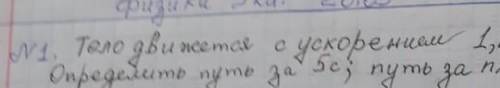 физики
N1. Тело движется с ускорением 1,
Определить путь за 5с; путь за п